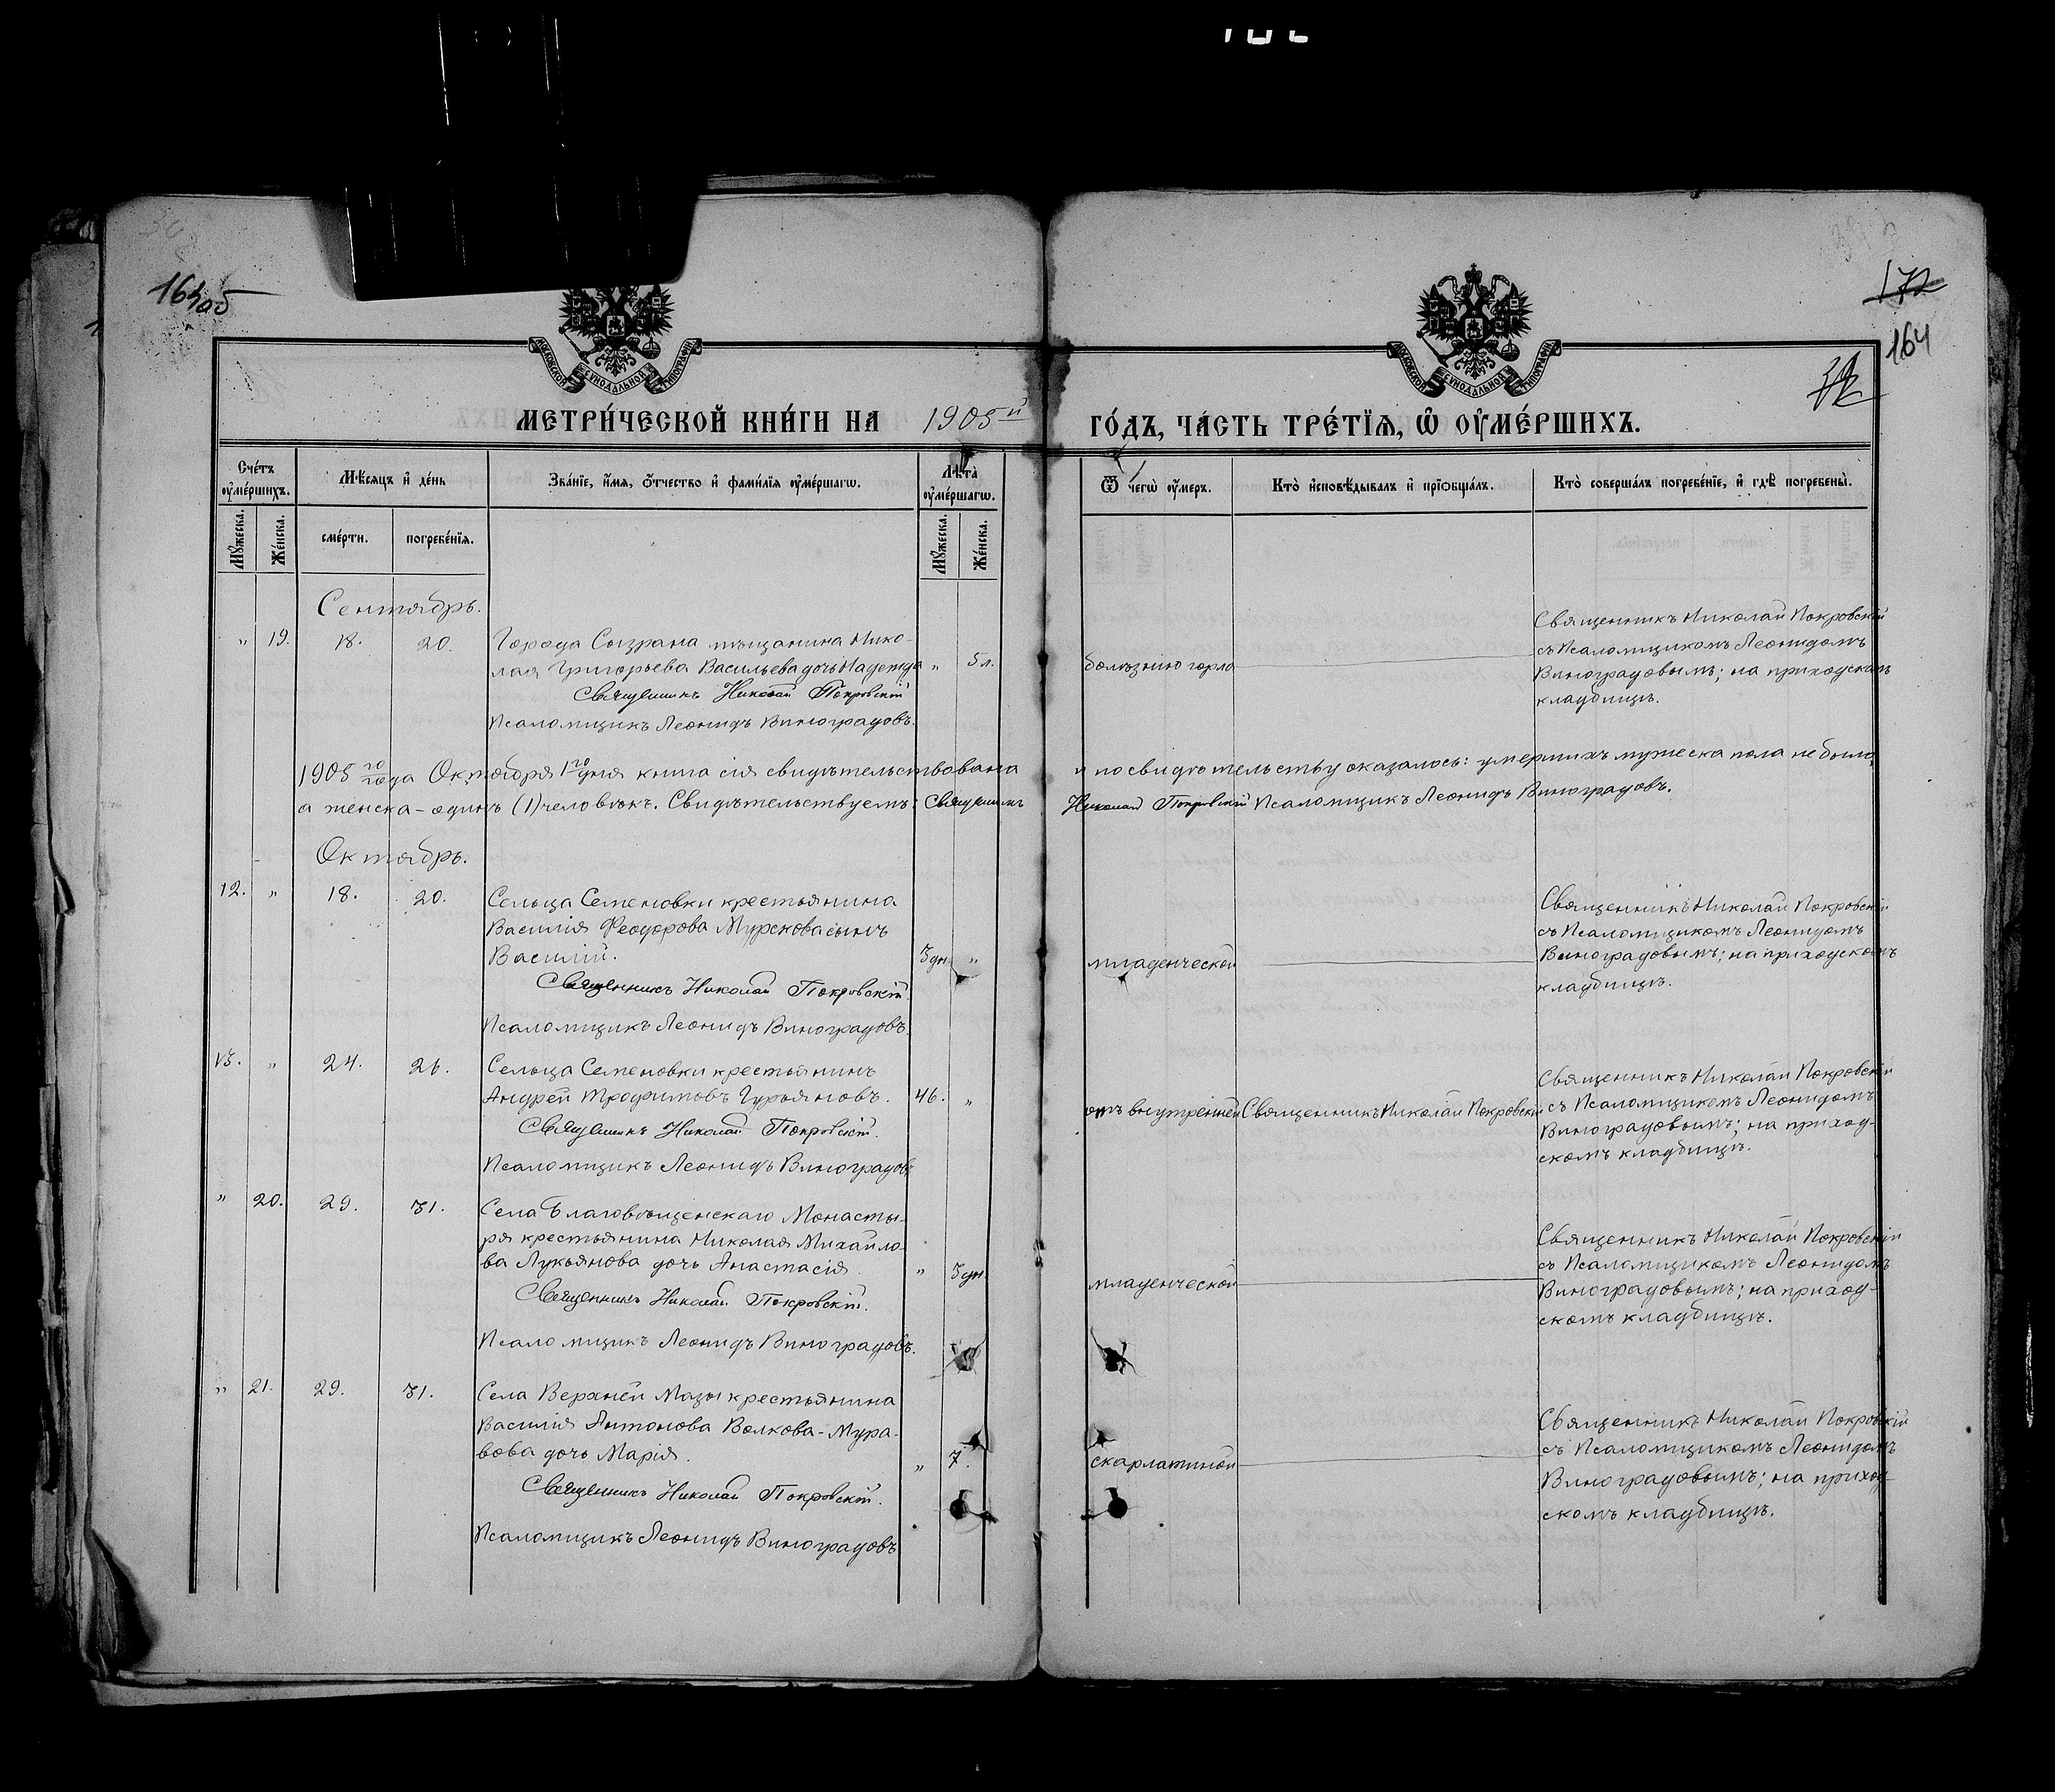 163об
172
164
МОСКОВСКОЙ СѴНОДАЛЬНОЙ ТИПОГРАФІИ
МОСКОВСКОЙ СѴНОДАЛЬНОЙ ТИПОГРАФІИ
МЕТРИ́ЧЕСКОЙ КНИ́ГИ НА 1905й ГО́ДЪ, ЧА́СТЬ ТРЕ́ТІѦ, Ѡ ОУМЕ́РШИХЪ.
Сче́тъ оуме́ршихъ.
Мѣсяцъ и де́нь
Зва́нїе, и́мя, о́тчество и фами́лїя оуме́ршагѡ.
Лѣта̀ оуме́ршагѡ.
Ѿ чегѡ̀ оу́меръ.
Кто̀ исповѣ́дывалъ и прїобща́лъ.
Кто̀ соверша́лъ погребе́нїе, и гдѣ̀ погребены̀.
Мꙋ́жеска.
Же́нска.
сме́рти.
погребе́нїя.
Мꙋ́жеска.
Же́нска.
Сентябрь.
" 19. 18. 20. Города Сызрана мѣщанина Нико-
лая Григорьева Васильева дочь Надежда " 5 л.
Священникъ Николай Покровскій
Псаломщикъ Леонидъ Виноградовъ.
болѣзнію горла
Священникъ Николай Покровскій
съ Псаломщикомъ Леонидомъ
Виноградовымъ; на приходскомъ
кладбищѣ.
1905го года Октября 1го дня книга сія свидѣтельствована и по свидѣтельству оказалось: умершихъ мужеска пола не было,
а женска – одинъ (1) человѣкъ. Свидѣтельствуемъ: Священникъ Николай Покровскій Псаломщикъ Леонидъ Виноградовъ.
Октябрь.
12. " 18. 20. Сельца Семеновки крестьянина
Василія Феодорова Мурскова сынъ
Василій. 3 дн. "
Священникъ Николай Покровскій.
Псаломщикъ Леонидъ Виноградовъ.
младенческой
Священникъ Николай Покровскій
съ Псаломщикомъ Леонидомъ
Виноградовымъ; на приходскомъ
кладбищѣ.
13. " 24. 26. Сельца Семеновки крестьянинъ
Андрей Трофимовъ Гурьяновъ. 46. "
Священникъ Николай Покровскій.
Псаломщикъ Леонидъ Виноградовъ
отъ внутренней Священникъ Николай Покровскій
Священникъ Николай Покровскій
съ Псаломщикомъ Леонидомъ
Виноградовымъ; на приход-
скомъ кладбищѣ.
" 20. 29. 31. Села Благовѣщенскаго Монасты-
ря крестьянина Николая Михайло-
ва Лукьянова дочь Анастасія. " 3 дн.
Священникъ Николай Покровскій.
Псаломщикъ Леонидъ Виноградовъ.
младенческой
Священникъ Николай Покровскій
съ Псаломщикомъ Леонидомъ
Виноградовымъ; на приход-
скомъ кладбищѣ.
" 21. 29. 31. Села Верхней Мазы крестьянина
Василія Антонова Волкова-Мура-
вова дочь Марія. " 7.
Священникъ Николай Покровскій.
Псаломщикъ Леонидъ Виноградовъ
скарлатиной
Священникъ Николай Покровскій
съ Псаломщикомъ Леонидомъ
Виноградовымъ; на приход-
скомъ кладбищѣ.